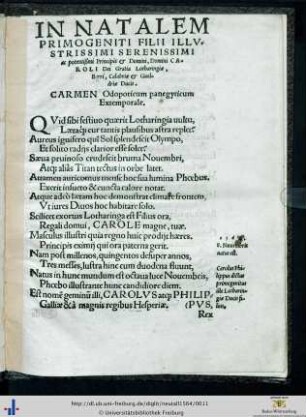 IN NATALEM
PRIMOGENITI FILII ILLV-
STRISSIMI SERENISSIMI
ac potentissimi Principis & Domini, Domini CA-
ROLI Dei Gratia Lotharingiæ,
Barri, Calabriæ & Gueldriæ
Ducis.
CARMEN Odoporicum panegyricum
Extemporale.
QVid sibi festiuo quærit Lotharingia vultu,
Lætaque cur tantis plausibus astra replet?
Aureus ignifero quid Sol splendescit Olympo,
Et solito radijs clarior esse solet?
Sæua pruinoso crudescit bruma Nouembri,
Atque alias Titan tectus in orbe latet.
Attamen auricomus mense hoc sua lumina Phœbus
Exerit insueto & cuncta calore notat.
Atque adeò lætam hoc demonstrat climate frontem,
Vt iures Diuos hoc habitare solo.
Scilicet exorsus Lotharinga est Filius ora,
Regali domui, CAROLE magne, tuæ.
Masculus illustri quia regno huic prodijt hæres,
Principis eximij qui ora paterna gerit.
Nam post millenos, quingentos desuper annos,
Tres menses, lustra hinc cum duodena fluunt,
Natus in hunc mundum est octaua luce Nouembris,
Phœbo illustrante hunc candidiore diem.
Est nomē geminū illi, CAROLVS atque PHILIP,
Galliæ & à magnis regibus Hesperiæ, (PVS,
Rex
natus est.
Carolus Phi-
lippus dictus
primogenitus
ille Lotharin-
giæ Ducis fi-
lius,
http://dl.ub.uni-freiburg.de/diglit/neuialt1564/0011
© Universitätsbibliothek Freiburg